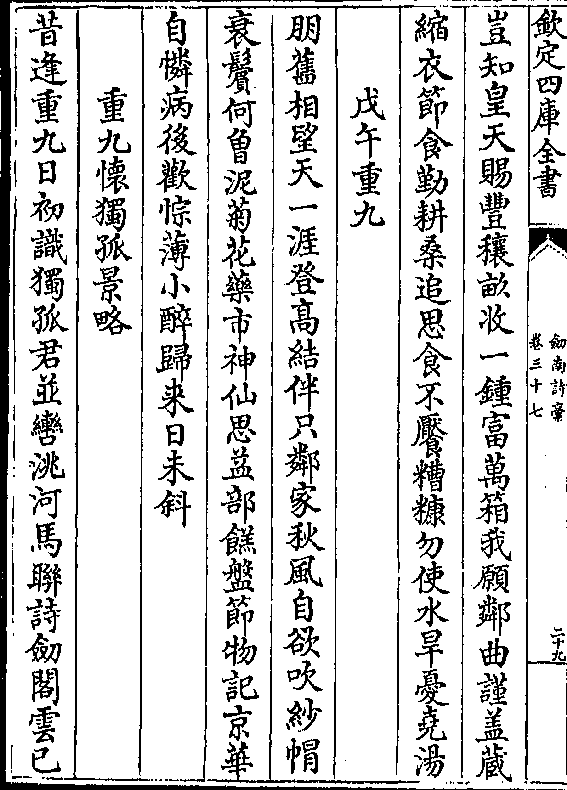 欽定四庫全書
劒南詩稾
卷三十七
二十九
豈知皇天賜豐穰畝收一鍾富萬箱我願鄰曲謹盖蔵
縮衣節食勤耕桑追思食不饜糟糠勿使水旱憂堯湯
戊午重九
朋舊相望天一涯登髙結伴只鄰家秋風自欲吹紗帽
衰鬢何曽泥菊花藥市神仙思益部餻盤節物記京華
自憐病後歡悰薄小醉歸来日未斜
重九懷獨孤景略
昔逢重九日初識獨孤君並轡洮河馬聯詩劒閣雲已